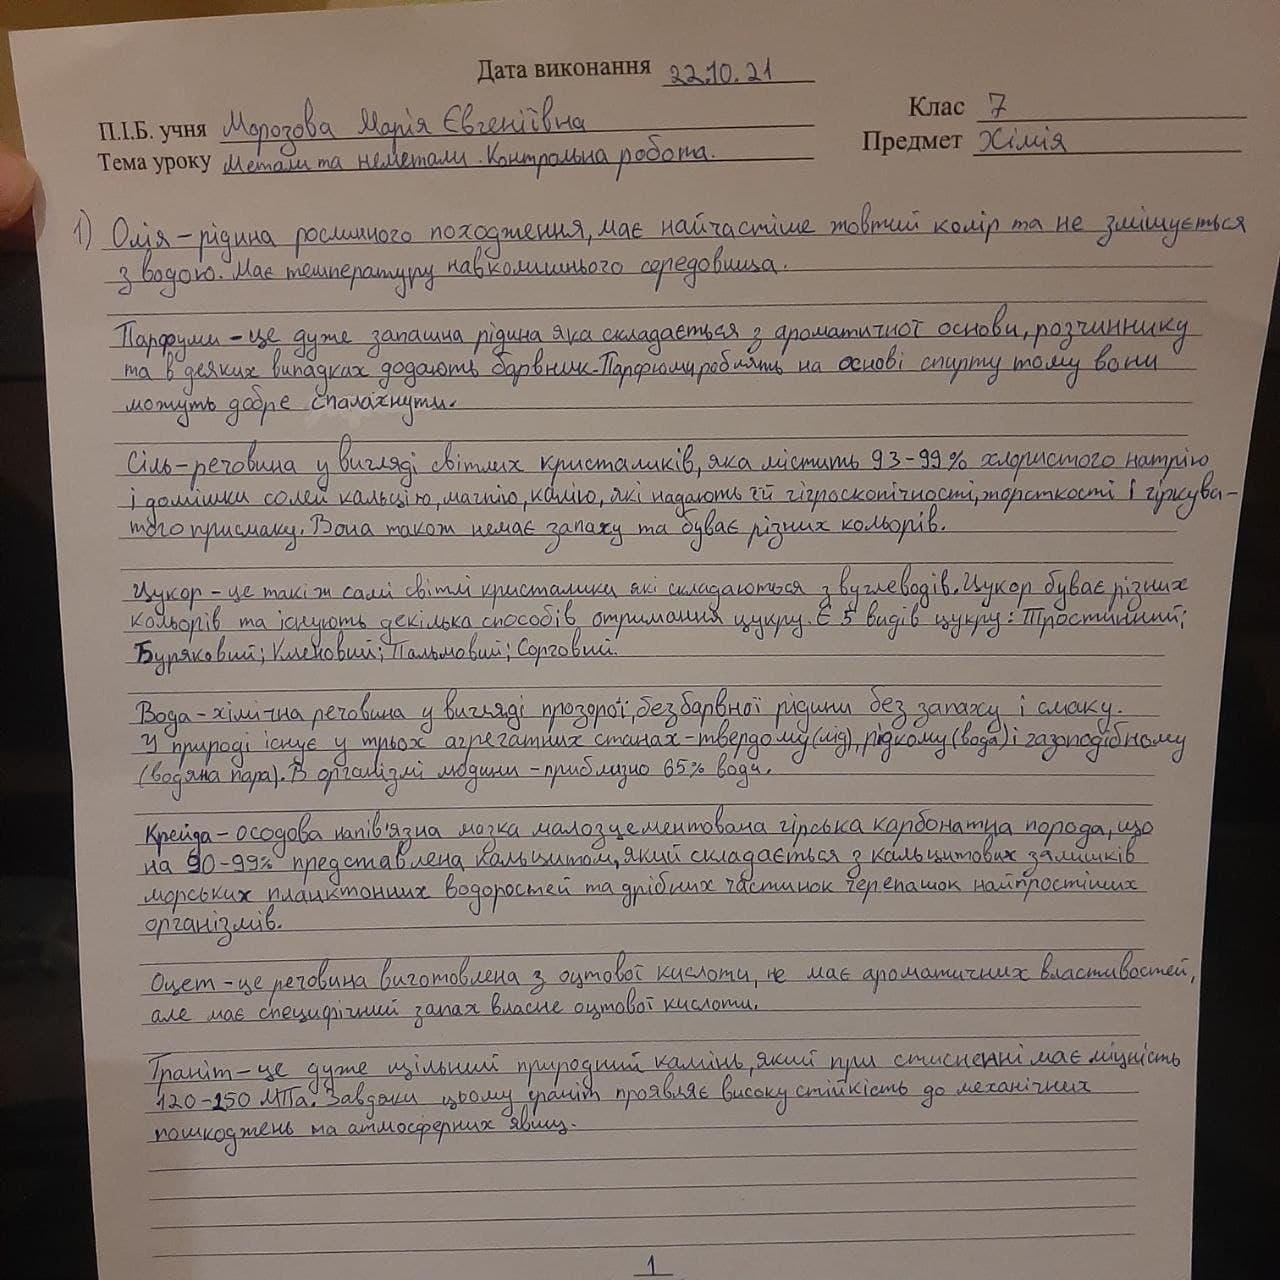 Дата виконання 22.10.21
П.І.Б. учня Морозова Марія Євгеніївна Клас 7
Тема уроку Метали та неметали. Контрольна робота. Предмет Хімія
1) Олія – рідина рослинного походження, має найчастіше жовтий колір та не змішується
з водою. Має температуру навколишнього середовища.
Парфуми – це дуже запашна рідина яка складається з ароматичної основи, розчиннику
та в деяких випадках додають барвник. Парфюми роблять на основі спирту тому вони
можуть добре спалахнути.
Сіль – речовина у вигляді світлих кристаликів, яка містить 93-99% хлористого натрію
і домішки солей кальцію, магнію, калію, які надають їй гігроскопічності, жорсткості і гіркува-
того присмаку. Вона також немає запаху та буває різних кольорів.
Цукор – це такі ж самі світлі кристалики які складаються з вуглеводів. Цукор буває різних
кольорів та існують декілька способів отримання цукру. Є 5 видів цукру: Тростинний;
Буряковий; Кленовий; Пальмовий; Сорговий.
Вода – хімічна речовина у вигляді прозорої, безбарвної рідини без запаху і смаку.
У природі існує у трьох агрегатних станах – твердому (лід), рідкому (вода) і газоподібному
(водяна пара). В організмі людини – приблизно 65% води.
Крейда – осодова напів'язна мазка малозцементована гірська карбонатна порода, що
на 90-99% представлена кальцитом, який складається з кальцитових залишків
морських планктонних водоростей та дрібних частинок черепашок найпростіших
організмів.
Оцет – це речовина виготовлена з оцтової кислоти, не має ароматичних властивостей,
але має специфічний запах власне оцтової кислоти.
Граніт – це дуже щільний природний камінь, який при стисненні має міцність
120-250 МПа. Завдяки цьому граніт проявляє високу стійкість до механічних
пошкоджень та атмосферних явищ.
1